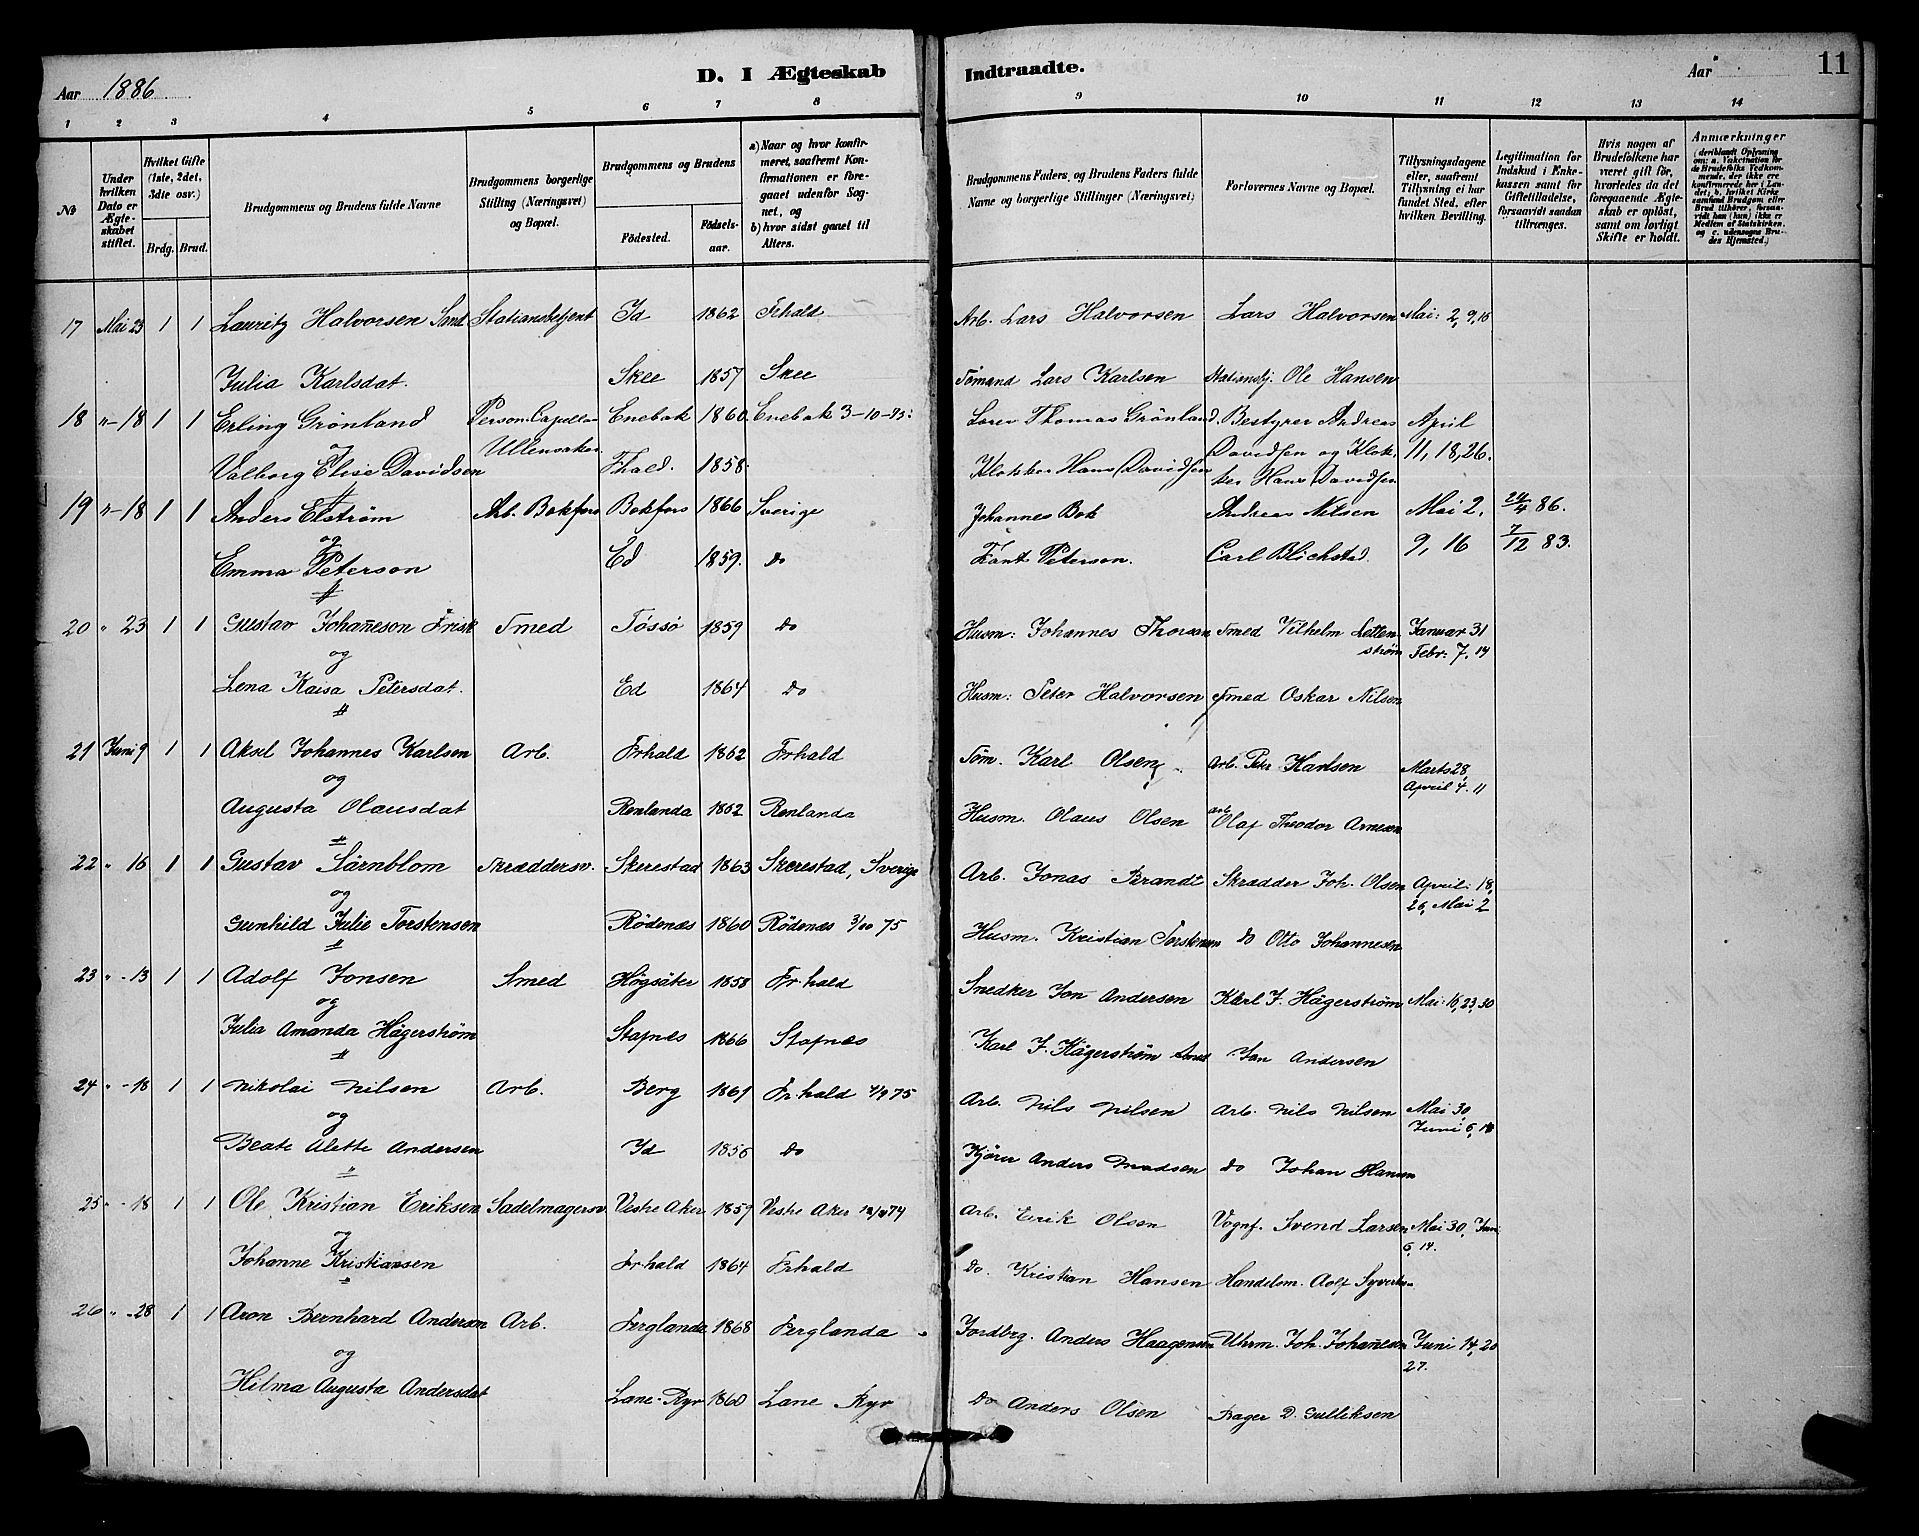 Aar 1886
D. I Ægteskab
Indtraadte.
Aar
11
1 2 3 4 5 6 7 8 9 10 11 12 13 14
№
Under hvilken Dato er Ægteskabet stiftet.
Hvilket Gifte (1ste, 2det, 3dte osv.)
Brdg. Brud.
Brudgommens og Brudens fulde Navne
Brudgommens borgerlige Stilling (Næringsvei) og Bopæl.
Brudgommens og Brudens
Fødested.
Fødselsaar.
a) Naar og hvor konfirmeret, saafremt Konfirmationen er foregaaet udenfor Sognet, og
b) hvor sidst gaaet til Alters.
Brudgommens Faders og Brudens Faders fulde Navne og borgerlige Stillinger (Næringsvei)
Forlovernes Navne og Bopæl.
Tillysningsdagene eller, saafremt Tillysning ei har fundet Sted, efter hvilken Bevilling.
Legitimation for Indskud i Enkekassen samt for Giftetilladelse, forsaavidt saadan tiltrænges.
Hvis nogen af Brudefolkene har været gift før, hvorledes da det foregaaende Ægteskab er opløst, samt om lovligt Skifte er holdt.
Anmærkninger (deriblandt Oplysning om: a. Vakcination for de Brudefolks Vedkommende, der ikke ere konfirmerede her i Landet, b. hvilket Kirkesamfund Brudgom eller Brud tilhører, forsaavidt han (hun) ikke er Medlem af Statskirken, og c. udensogns Brudes Hjemsted.)
17 Mai 23 1 1 Lauritz Halvorsen Sand Stationsbetjent Id 1862 Frhald Arb. Lars Halvorsen Lars Halvorsen Mai: 2, 9, 16
Julia Karlsdat. Skee 1857 Skee Tømand Lars Karlsen Stationsbj. Ole Hansen
18 "-18 1 1 Erling Grönland Person. Capellan Enebak 1860 Enebak 3-10-75: Thomas Grönland. Bestyrer Andreas April
og Ullensaker Davidsen og Klok- 11, 18, 26.
Valborg Elise Davidsen Fhald. 1858. Klokker Hans Davidsen ker Hans Davidsen
19 "-18 1 1 Anders Elström Arb. Bokfors Bokfors 1866 Sverige Johannes Bok Andreas Nilsen Mai 2, 24/4 86.
og 9, 16 7/12 83.
Emma Peterson Ed 1859. do Peterson. Carl Blichstad.
20 " 23 1 1 Gustav Johaneson Frisk Smed Tössö 1859 do Husm: Johannes Thorsen Smed Vilhelm Lettenstrøm Januar 31
og Febr: 7. 14
Lena Kaisa Petersdat. Ed 1864 do Husm: Peter Halvorsen Smed Oskar Nilsen
21 Juni 9 1 1 Aksel Johannes Karlsen Arb. Frhald 1862 Frhald Töm. Karl Olsen Arb. Peter Karlsen Marts 28,
og April 4. 11
Augusta Olausdat Renlanda 1852 Renlanda Husm. Olaus Olsen Arb Olaf Theodor Arnesen
22 " 16 1 1 Gustav Skræddersv. Skerestad 1863 Skerestad, Sverige Arb. Jonas Brandt Skrædder Joh. Olsen April: 18,
og 26, Mai 2
Gunhild Julie Torstensen Rödenæs 1860 Rödenæs 3/10 75 Husm. Kristian Torstensen do Otto Johannesen
23 "-13 1 1 Adolf Jonsen Smed Högsäter 1858 Fr.hald Snedker Jon Andersen Karl J. Hägerström Mai: 16, 23, 30
og
Julia Amanda Hägerström Stafnes 1866 Stafnes Karl J. Hägerström Smed Jon Andersen
24 "-18 1 1 Nikolai Nilsen Arb. Berg 1861 Fr.hald 4/9 75 Arb. Nils Nilsen Arb. Nils Nilsen Mai 30,
og Juni 6, 14
Beate Alette Andersen Id 1856 do Kjører Anders Madsen do Johan Hansen
25 "-18 1 1 Ole Kristian Eriksen Sadelmagersv. Vestre Aker 1859 Vestre Aker Arb. Erik Olsen Vognf. Svend Larsen Mai 30, Juni
og 6, 14.
Johanne Kristiansen Frhald 1864 Frhald do. Kristian Hansen Handelsm. Adolf Syverts.
26 "-28 1 1 Aron Bernhard Anderson Arb. Ferglanda 1868 Ferglanda Jordbrg. Anders Haagensen Uhrm. Joh. Johanesen Juni 14, 20
og 27.
Hilma Augusta Andersdat Lane-Ryr 1860 Lane Ryr do Anders Olsen Bager D. Gulliksen